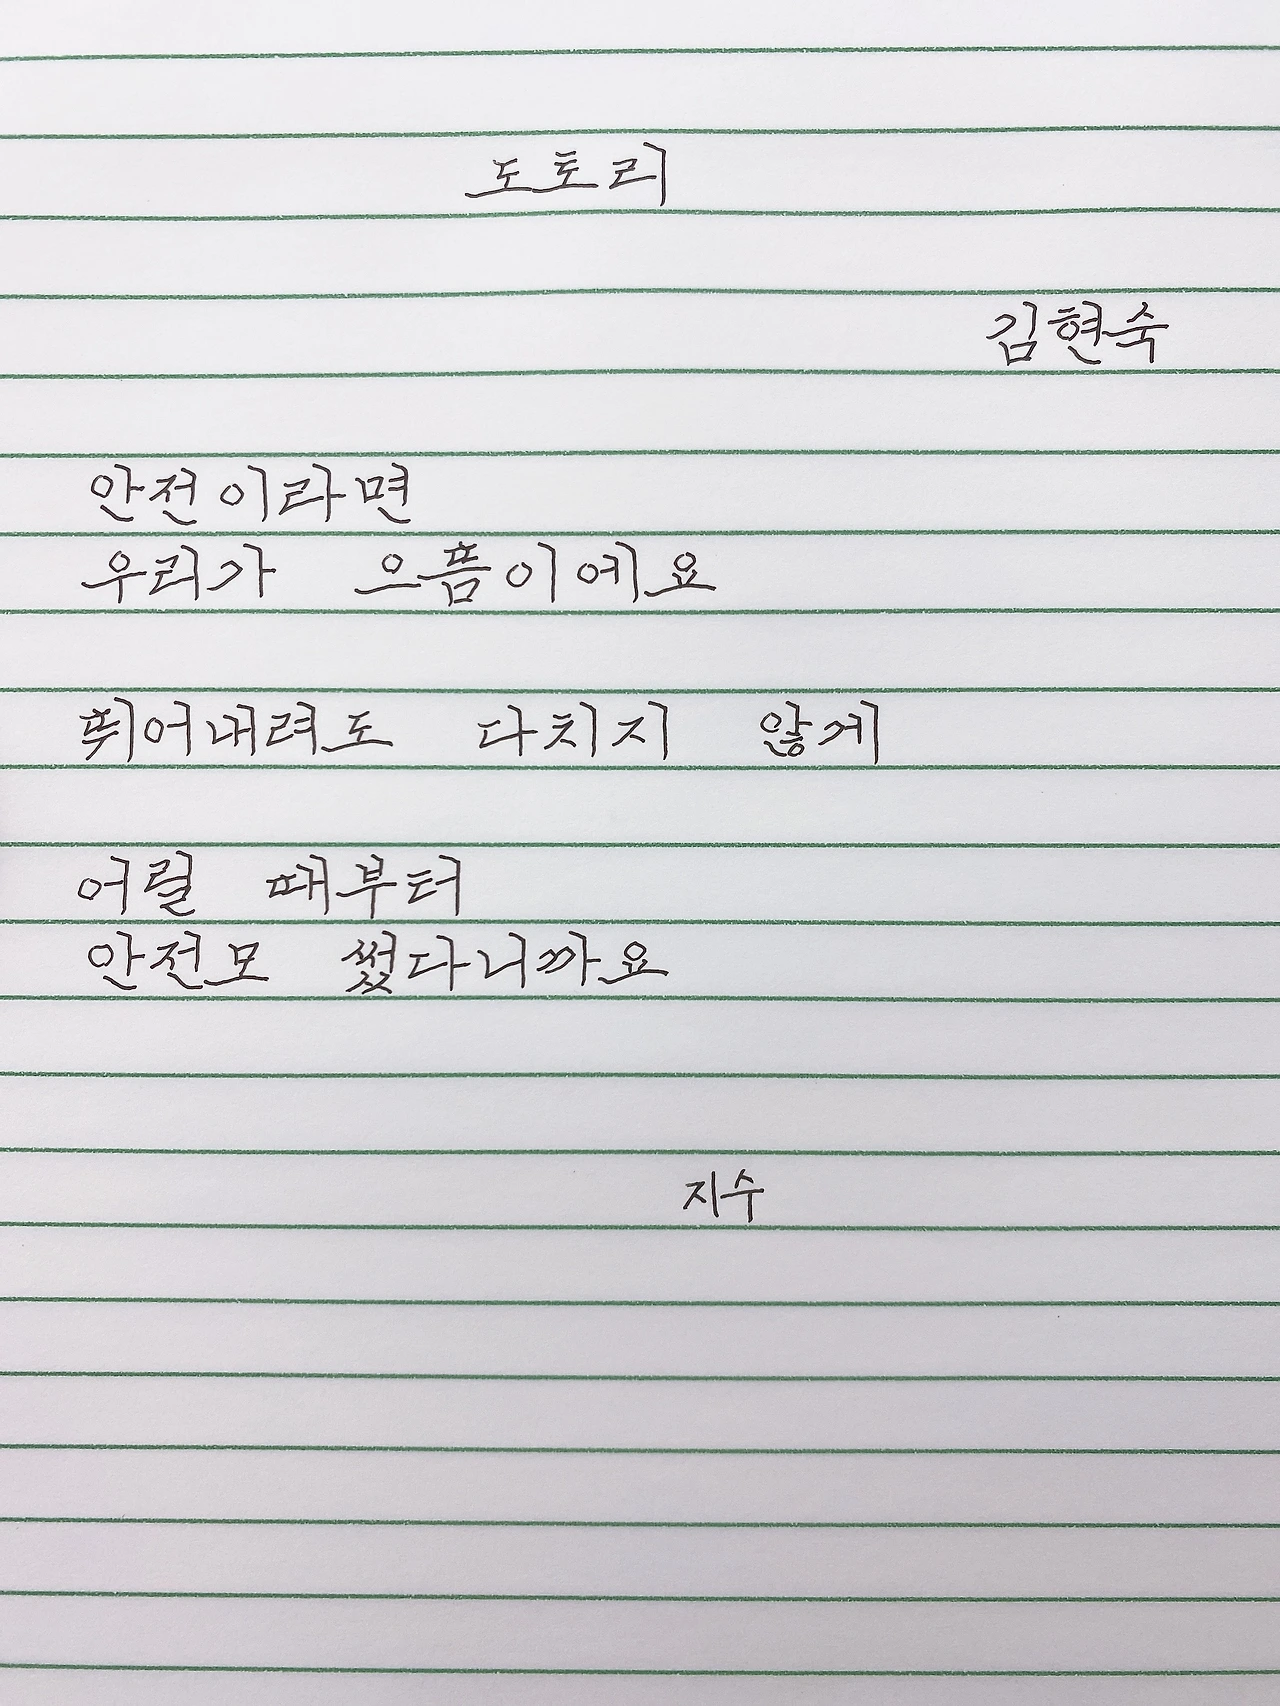 도토리
김현숙
안전이라면
우리가 으뜸이에요
뛰어내려도 다치지 않게
어릴 때부터
안전모 썼다니까요
지수